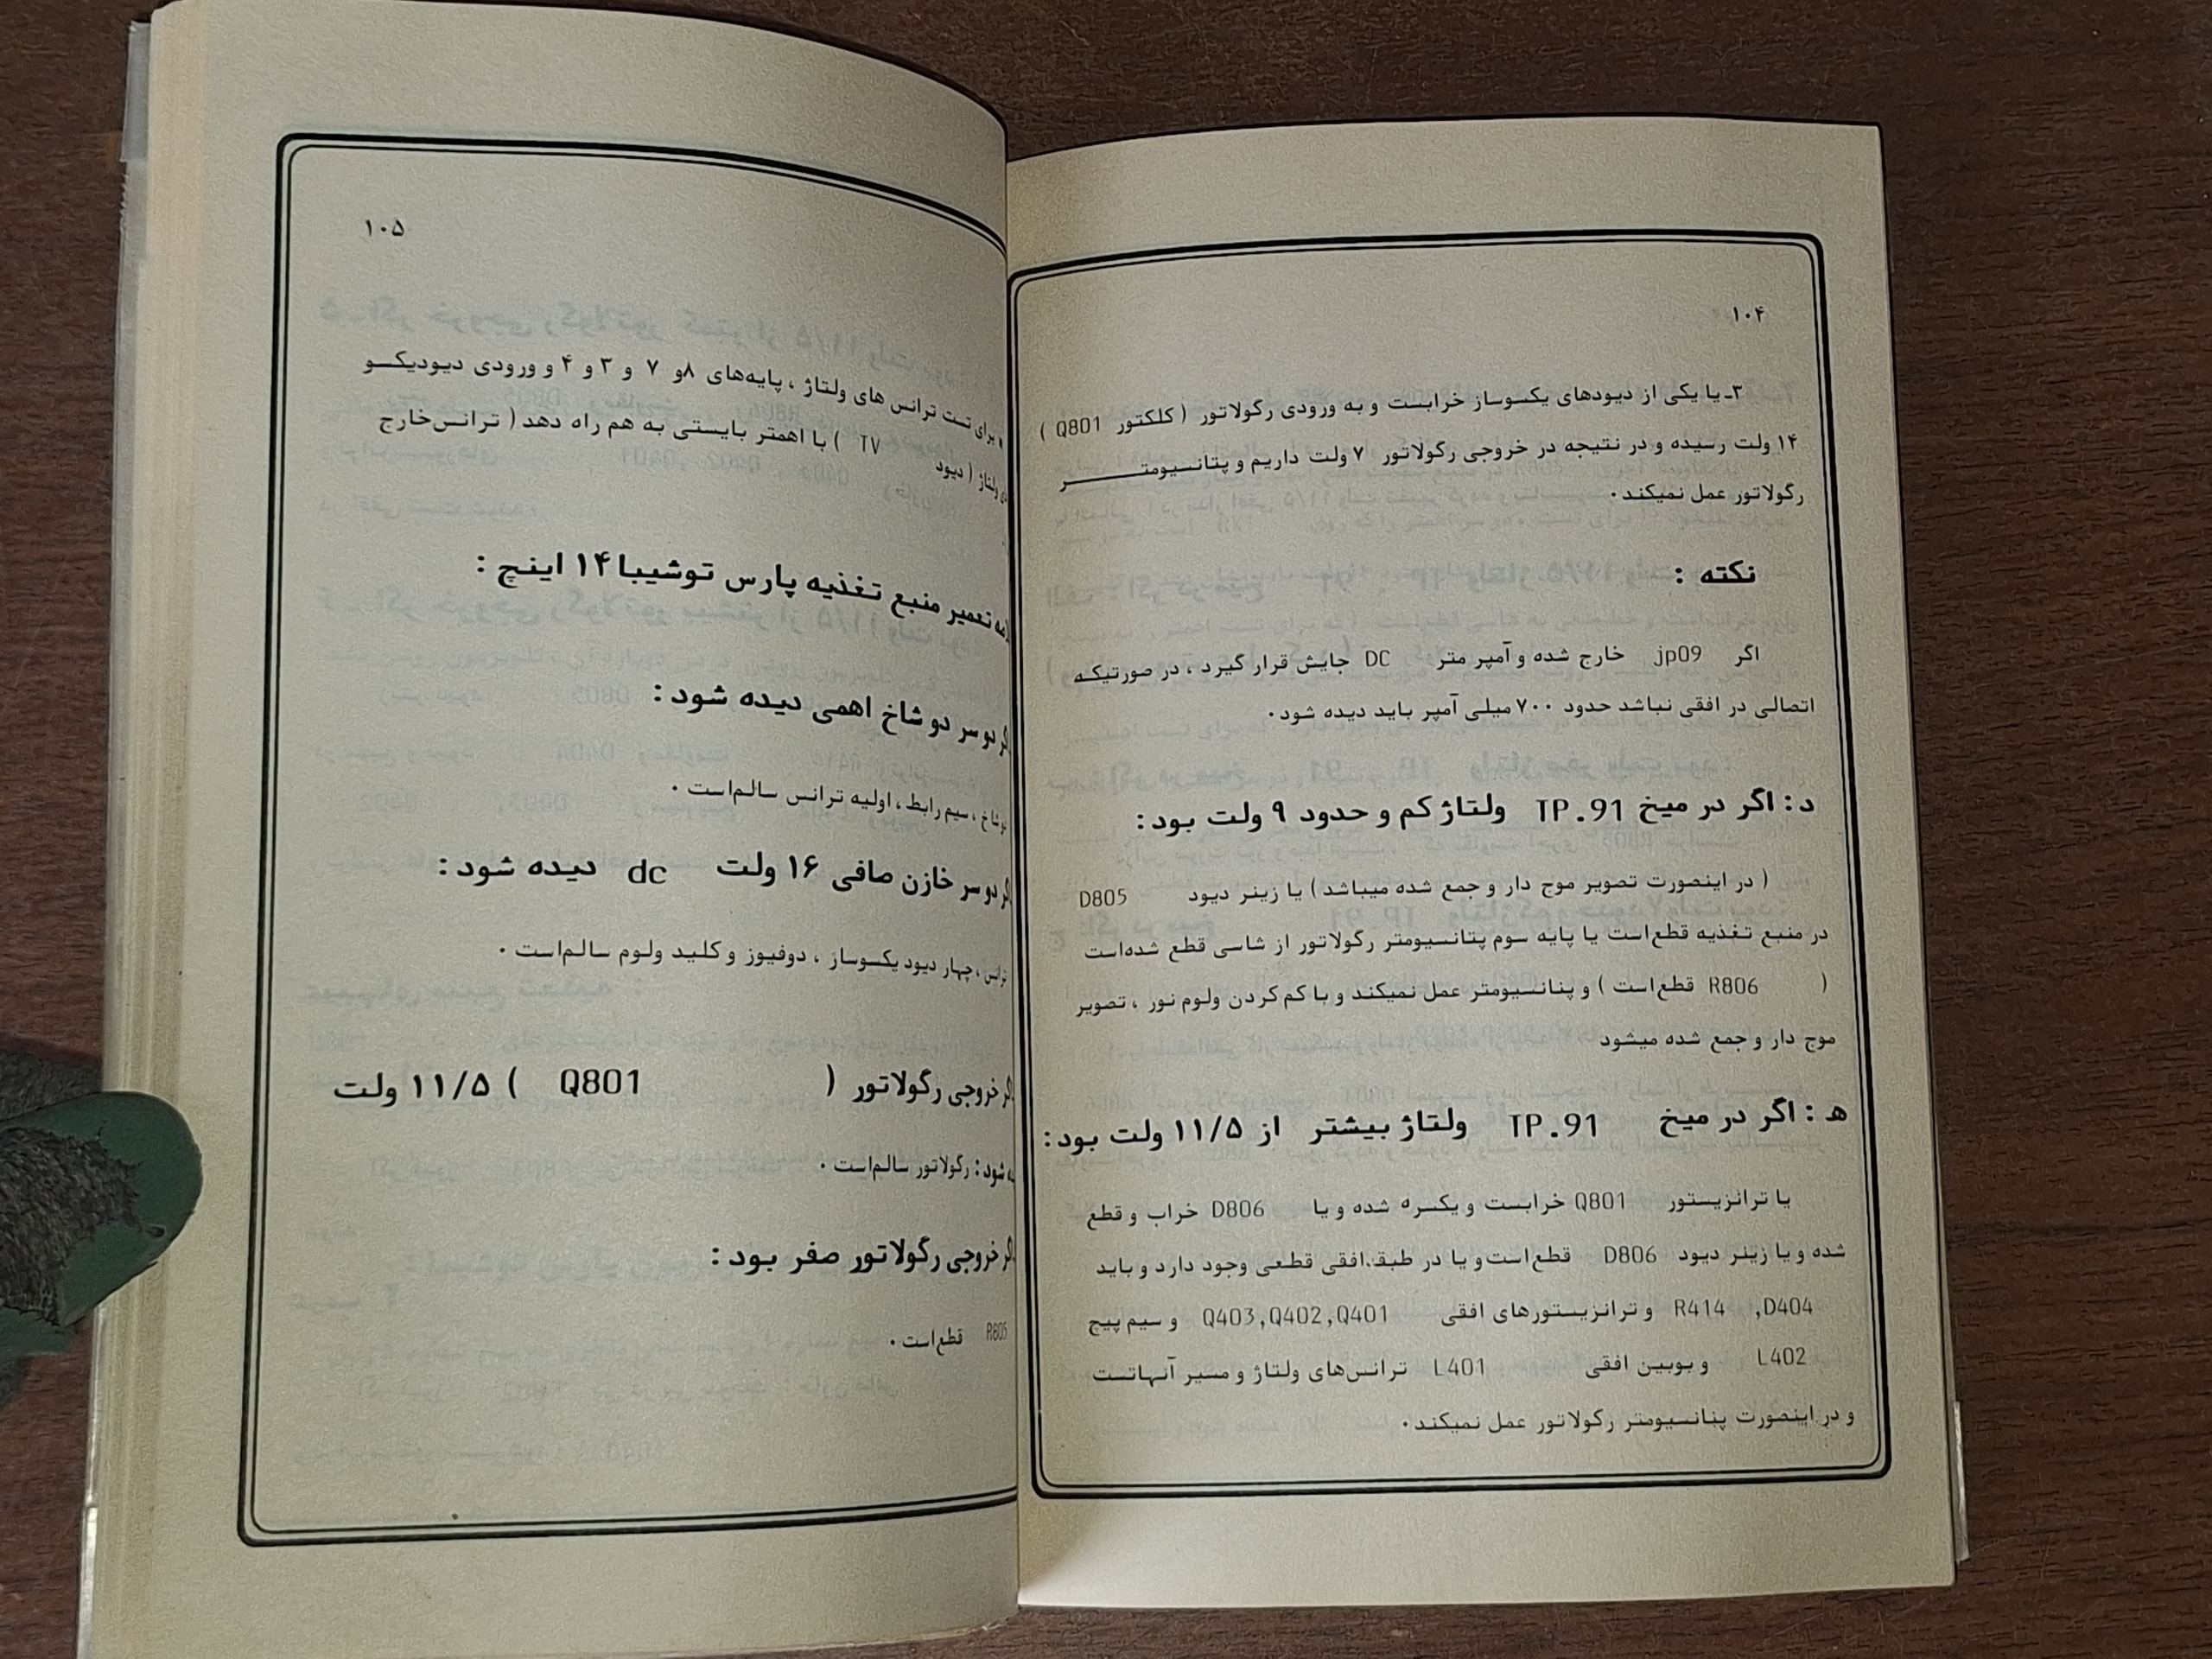 ۱۰۴
۳ـ یا یکی از دیودهای یکسوساز خرابست و به ورودی رگولاتور ( کلکتور Q801 )
۱۴ ولت رسیده و در نتیجه در خروجی رگولاتور ۷ ولت داریم و پتانسیومتر
رگولاتور عمل نمیکند .
نکته :
اگر jp09 خارج شده و آمپر متر DC جایش قرار گیرد ، در صورتیکه
اتصالی در افقی نباشد حدود ۷۰۰ میلی آمپر باید دیده شود .
د : اگر در میخ TP.91 ولتاژ کم و حدود ۹ ولت بود :
( در اینصورت تصویر موج دار و جمع شده میباشد ) یا زینر دیود D805
در منبع تغذیه قطع‌است یا پایه سوم پتانسیومتر رگولاتور از شاسی قطع شده‌است
( R806 قطع‌است ) و پنانسیومتر عمل نمیکند و با کم کردن ولوم نور ، تصویر
موج دار و جمع شده میشود
ه : اگر در میخ TP.91 ولتاژ بیشتر از ۱۱/۵ ولت بود :
یا ترانزیستور Q801 خرابست و یکسره شده و یا D806 خراب و قطع
شده و یا زینر دیود D806 قطع‌است و یا در طبقه‌افقی قطعی وجود دارد و باید
R414 ,D404 و ترانزیستورهای افقی Q403,Q402,Q401 و سیم پیچ
L402 و بوبین افقی L401 ترانس‌های ولتاژ و مسیر آنهاتست
و در اینصورت پنانسیومتر رگولاتور عمل نمیکند .
۱۰۵
برای تست ترانس های ولتاژ ، پایه‌های ۸و ۷ و ۳ و ۴ و ورودی دیودیکسو
ولتاژ ( دیود TV ) با اهمتر بایستی به هم راه دهد ( ترانس‌خارج
تعمیر منبع تغذیه پارس توشیبا ۱۴ اینچ :
دو سر دو شاخ اهمی دیده شود :
دوشاخ ، سیم رابط ، اولیه ترانس سالم‌است .
دو سر خازن صافی ۱۶ ولت dc دیده شود :
ترانس ، چهار دیود یکسوساز ، دوفیوز و کلید ولوم سالم‌است .
خروجی رگولاتور ( Q801 ) ۱۱/۵ ولت
شود : رگولاتور سالم‌است .
خروجی رگولاتور صفر بود :
R805 قطع‌است .